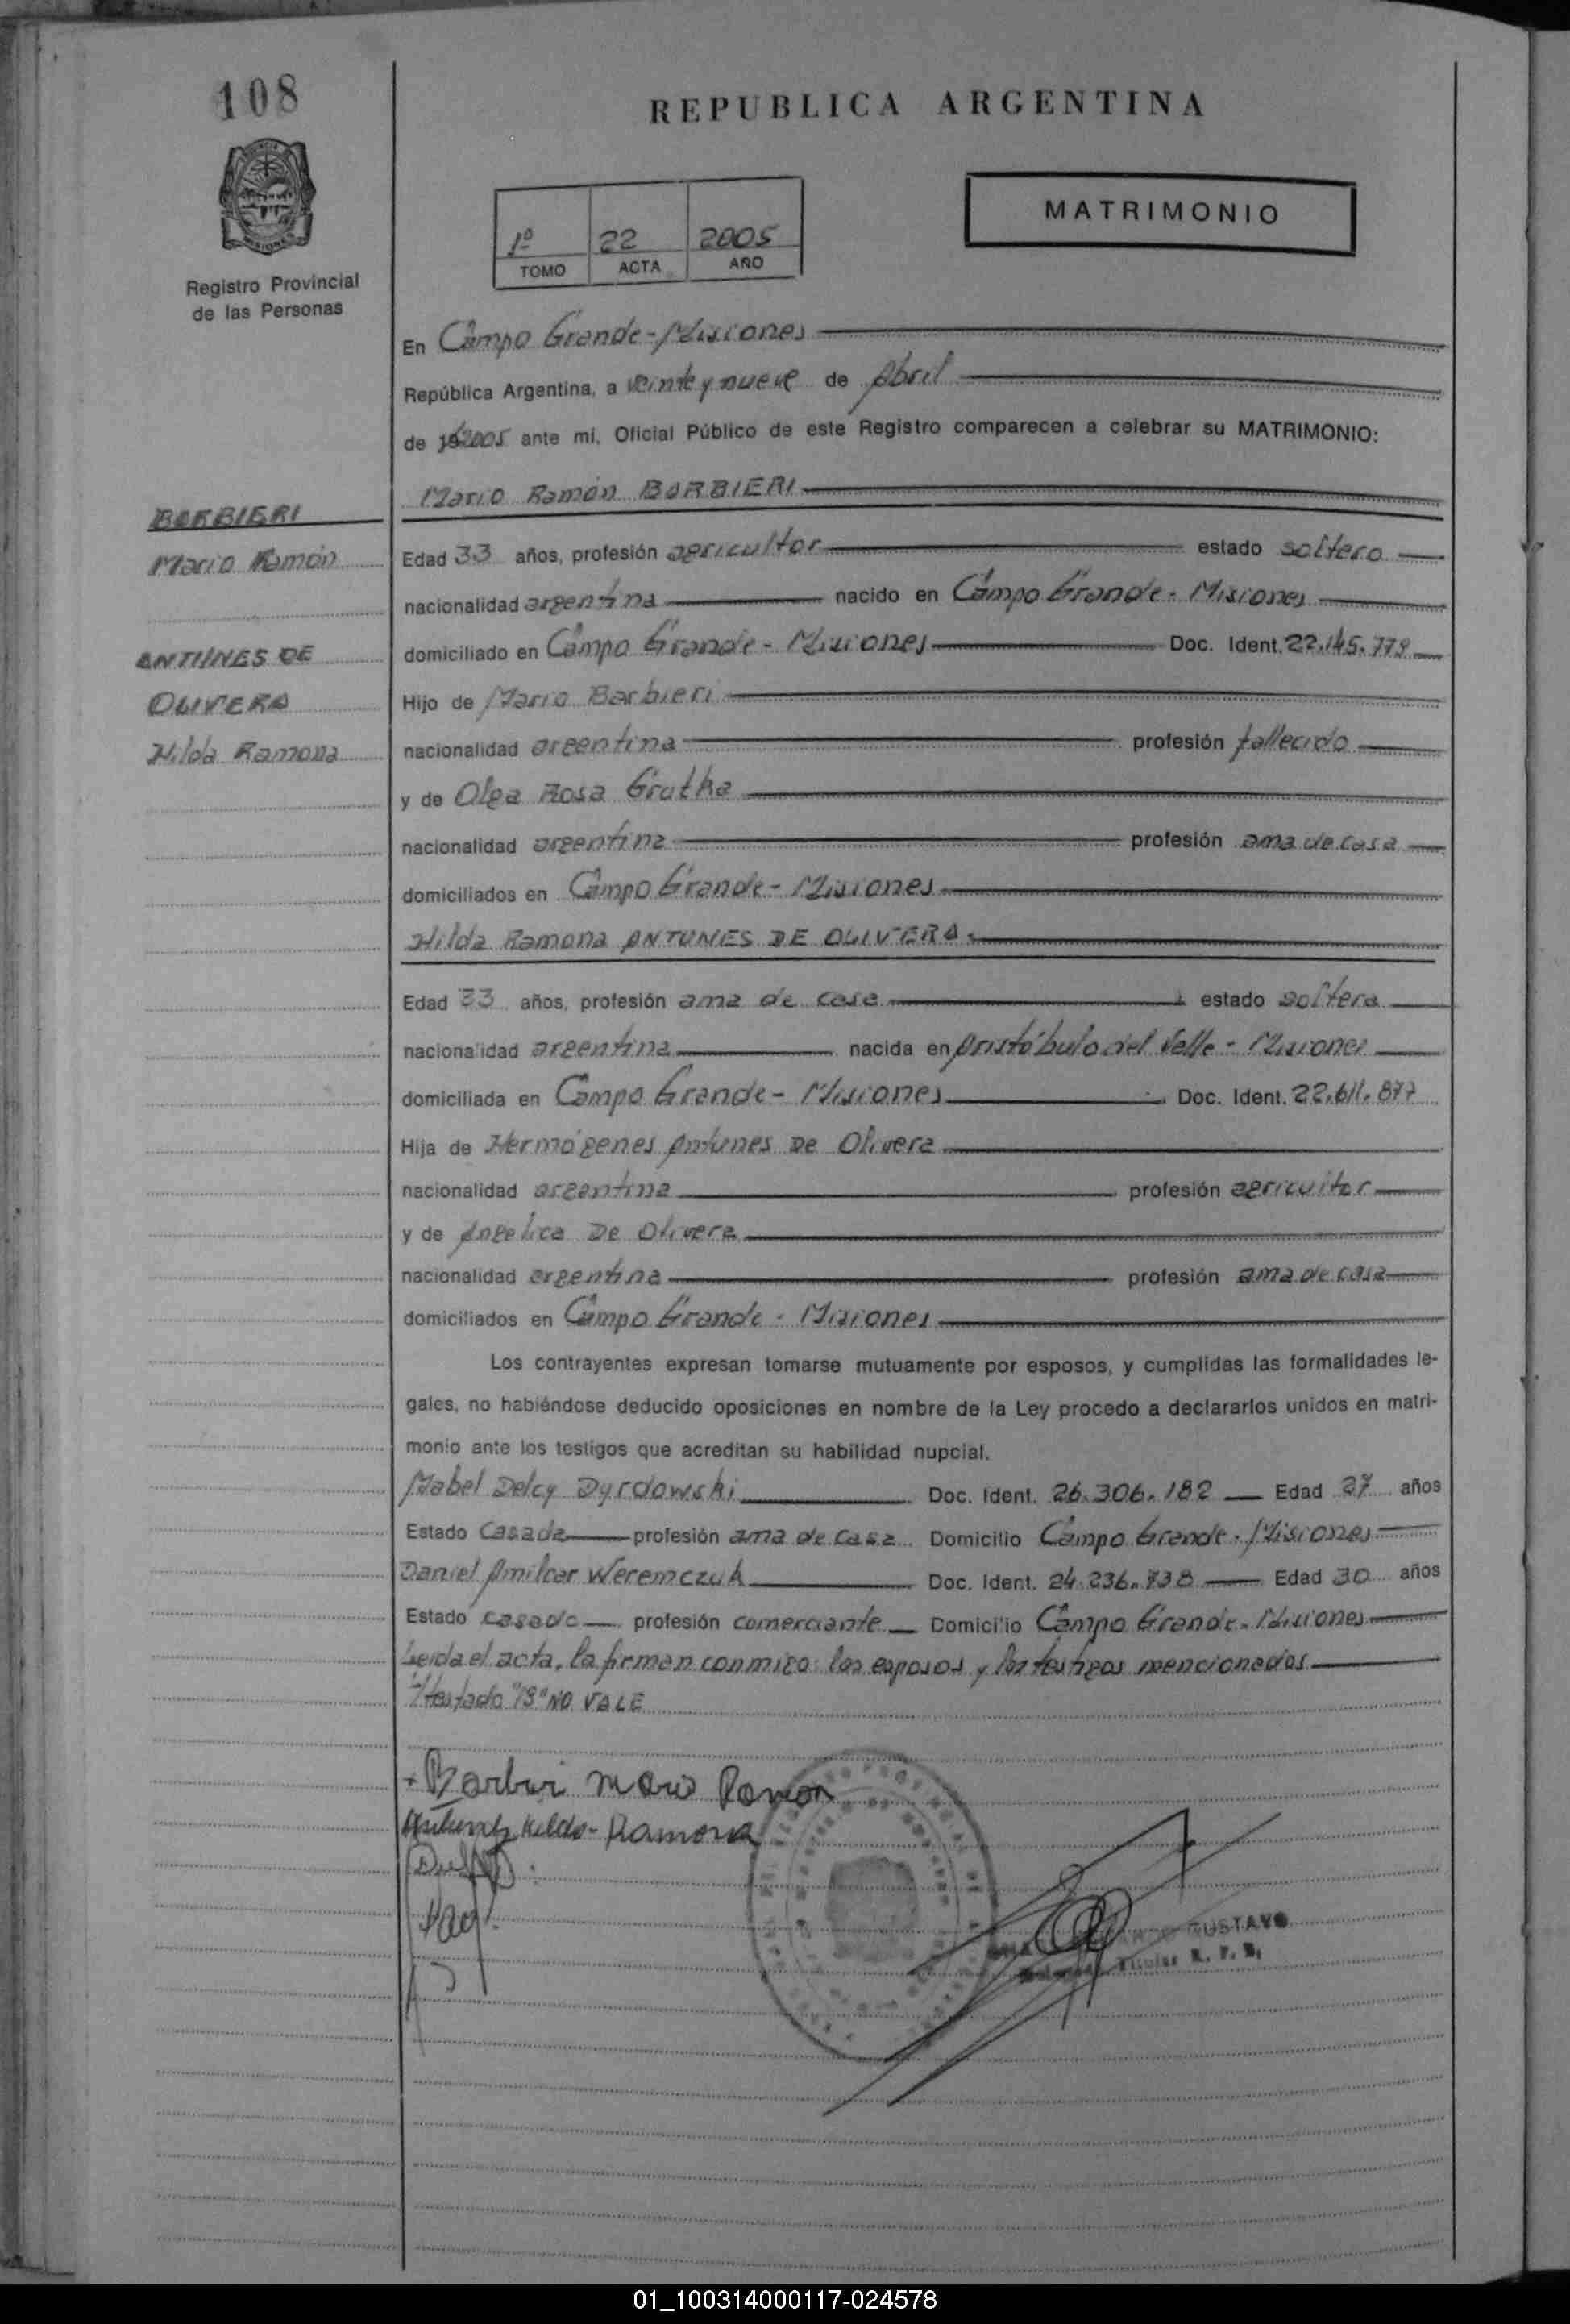 108
REPUBLICA ARGENTINA
MATRIMONIO
1º 22 2005
TOMO ACTA AÑO
Registro Provincial
de las Personas
En Campo Grande-Misiones
República Argentina, a veinte y nueve de Abril
de 19 2005 ante mi, Oficial Público de este Registro comparecen a celebrar su MATRIMONIO:
Mario Ramón BARBIERI
BARBIERI
Mario Ramón
Edad 33 años, profesión agricultor estado soltero
nacionalidad argentina nacido en Campo Grande - Misiones
ANTUNES DE
domiciliado en Campo Grande - Misiones Doc. Ident. 22.145.779
OLIVERA
Hijo de Mario Barbieri
Hilda Ramona
nacionalidad argentina profesión fallecido
y de Olga Rosa Grutka
nacionalidad argentina profesión ama de casa
domiciliados en Campo Grande - Misiones
Hilda Ramona ANTUNES DE OLIVERA.
Edad 33 años, profesión ama de casa estado soltera
nacionalidad argentina nacida en Aristóbulo del Valle - Misiones
domiciliada en Campo Grande - Misiones Doc. Ident. 22.611.877
Hija de Hermógenes Antunes De Olivera
nacionalidad argentina profesión agricultor
y de Angelica De Olivera
nacionalidad argentina profesión ama de casa
domiciliados en Campo Grande - Misiones
Los contrayentes expresan tomarse mutuamente por esposos, y cumplidas las formalidades le-
gales, no habiéndose deducido oposiciones en nombre de la Ley procedo a declararlos unidos en matri-
monio ante los testigos que acreditan su habilidad nupcial.
Mabel Delcy Dyrdowski Doc. Ident. 26.306.182 Edad 27 años
Estado Casada profesión ama de casa Domicilio Campo Grande - Misiones
Daniel Amilcar Weremczuk Doc. Ident. 24.236.738 Edad 30 años
Estado casado profesión comerciante Domicilio Campo Grande - Misiones
Leida el acta, la firman conmigo los esposos y los testigos mencionados
Testado "19" NO VALE
Barbieri Mario Ramon
Antunez Hilda - Ramona
GUSTAVO
Titular R. P. P.
01_100314000117-024578